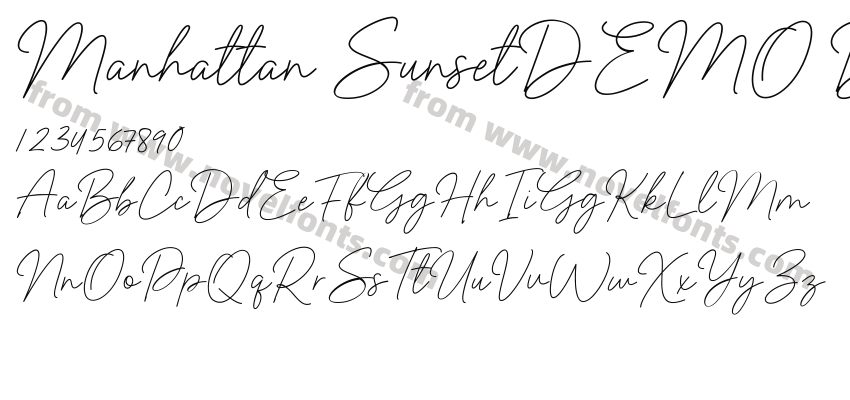 Manhattan SunsetDEMO
1234567890
AaBbCcDdEeFfGgHhIiGgKkLlMm
NnOoPpQqRrSsTtUuVvWwXxYyZz
from www.novelfonts.com
from www.novelfonts.com